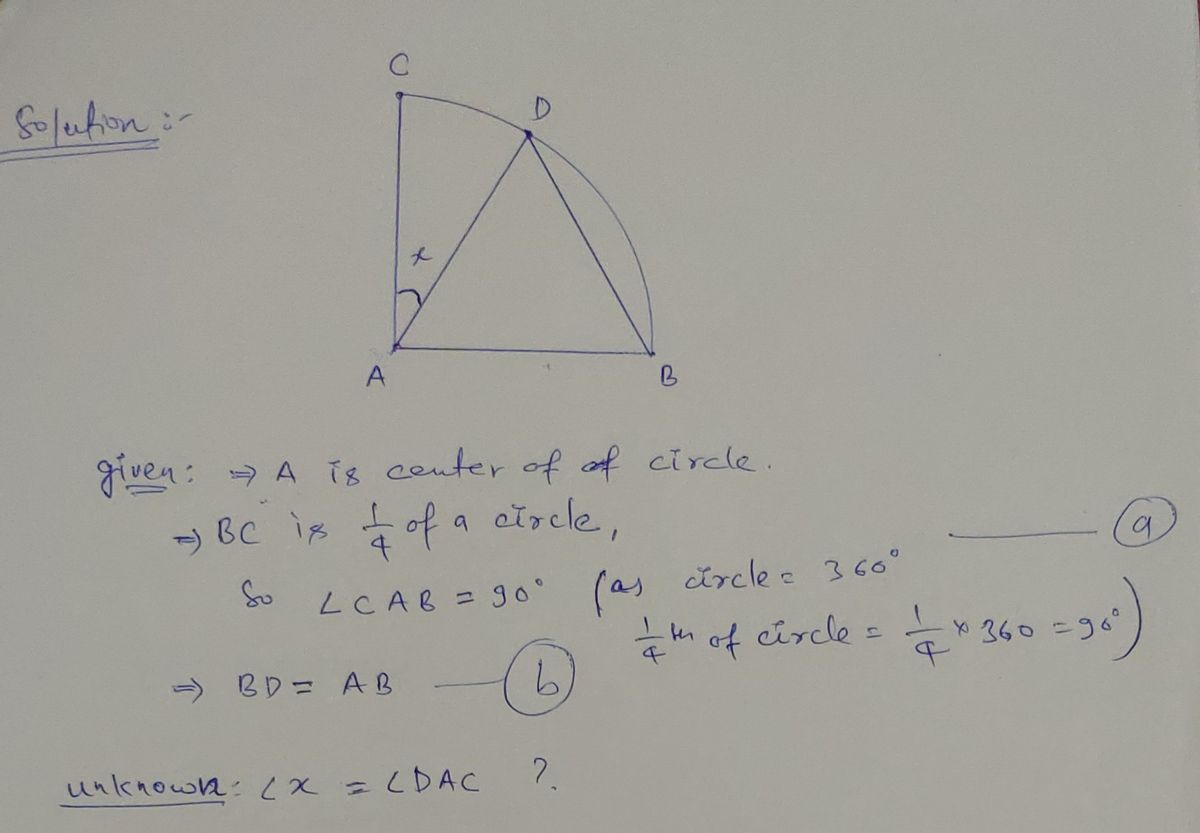 Solution :-
C
D
x
A
B
given: ⇒ A is center of of circle.
⇒ BC is 1/4 of a circle, —— (a)
So ∠CAB = 90° (as circle = 360°
1/4 th of circle = 1/4 × 360 = 90°)
⇒ BD = AB —— (b)
unknown: ∠x = ∠DAC ?